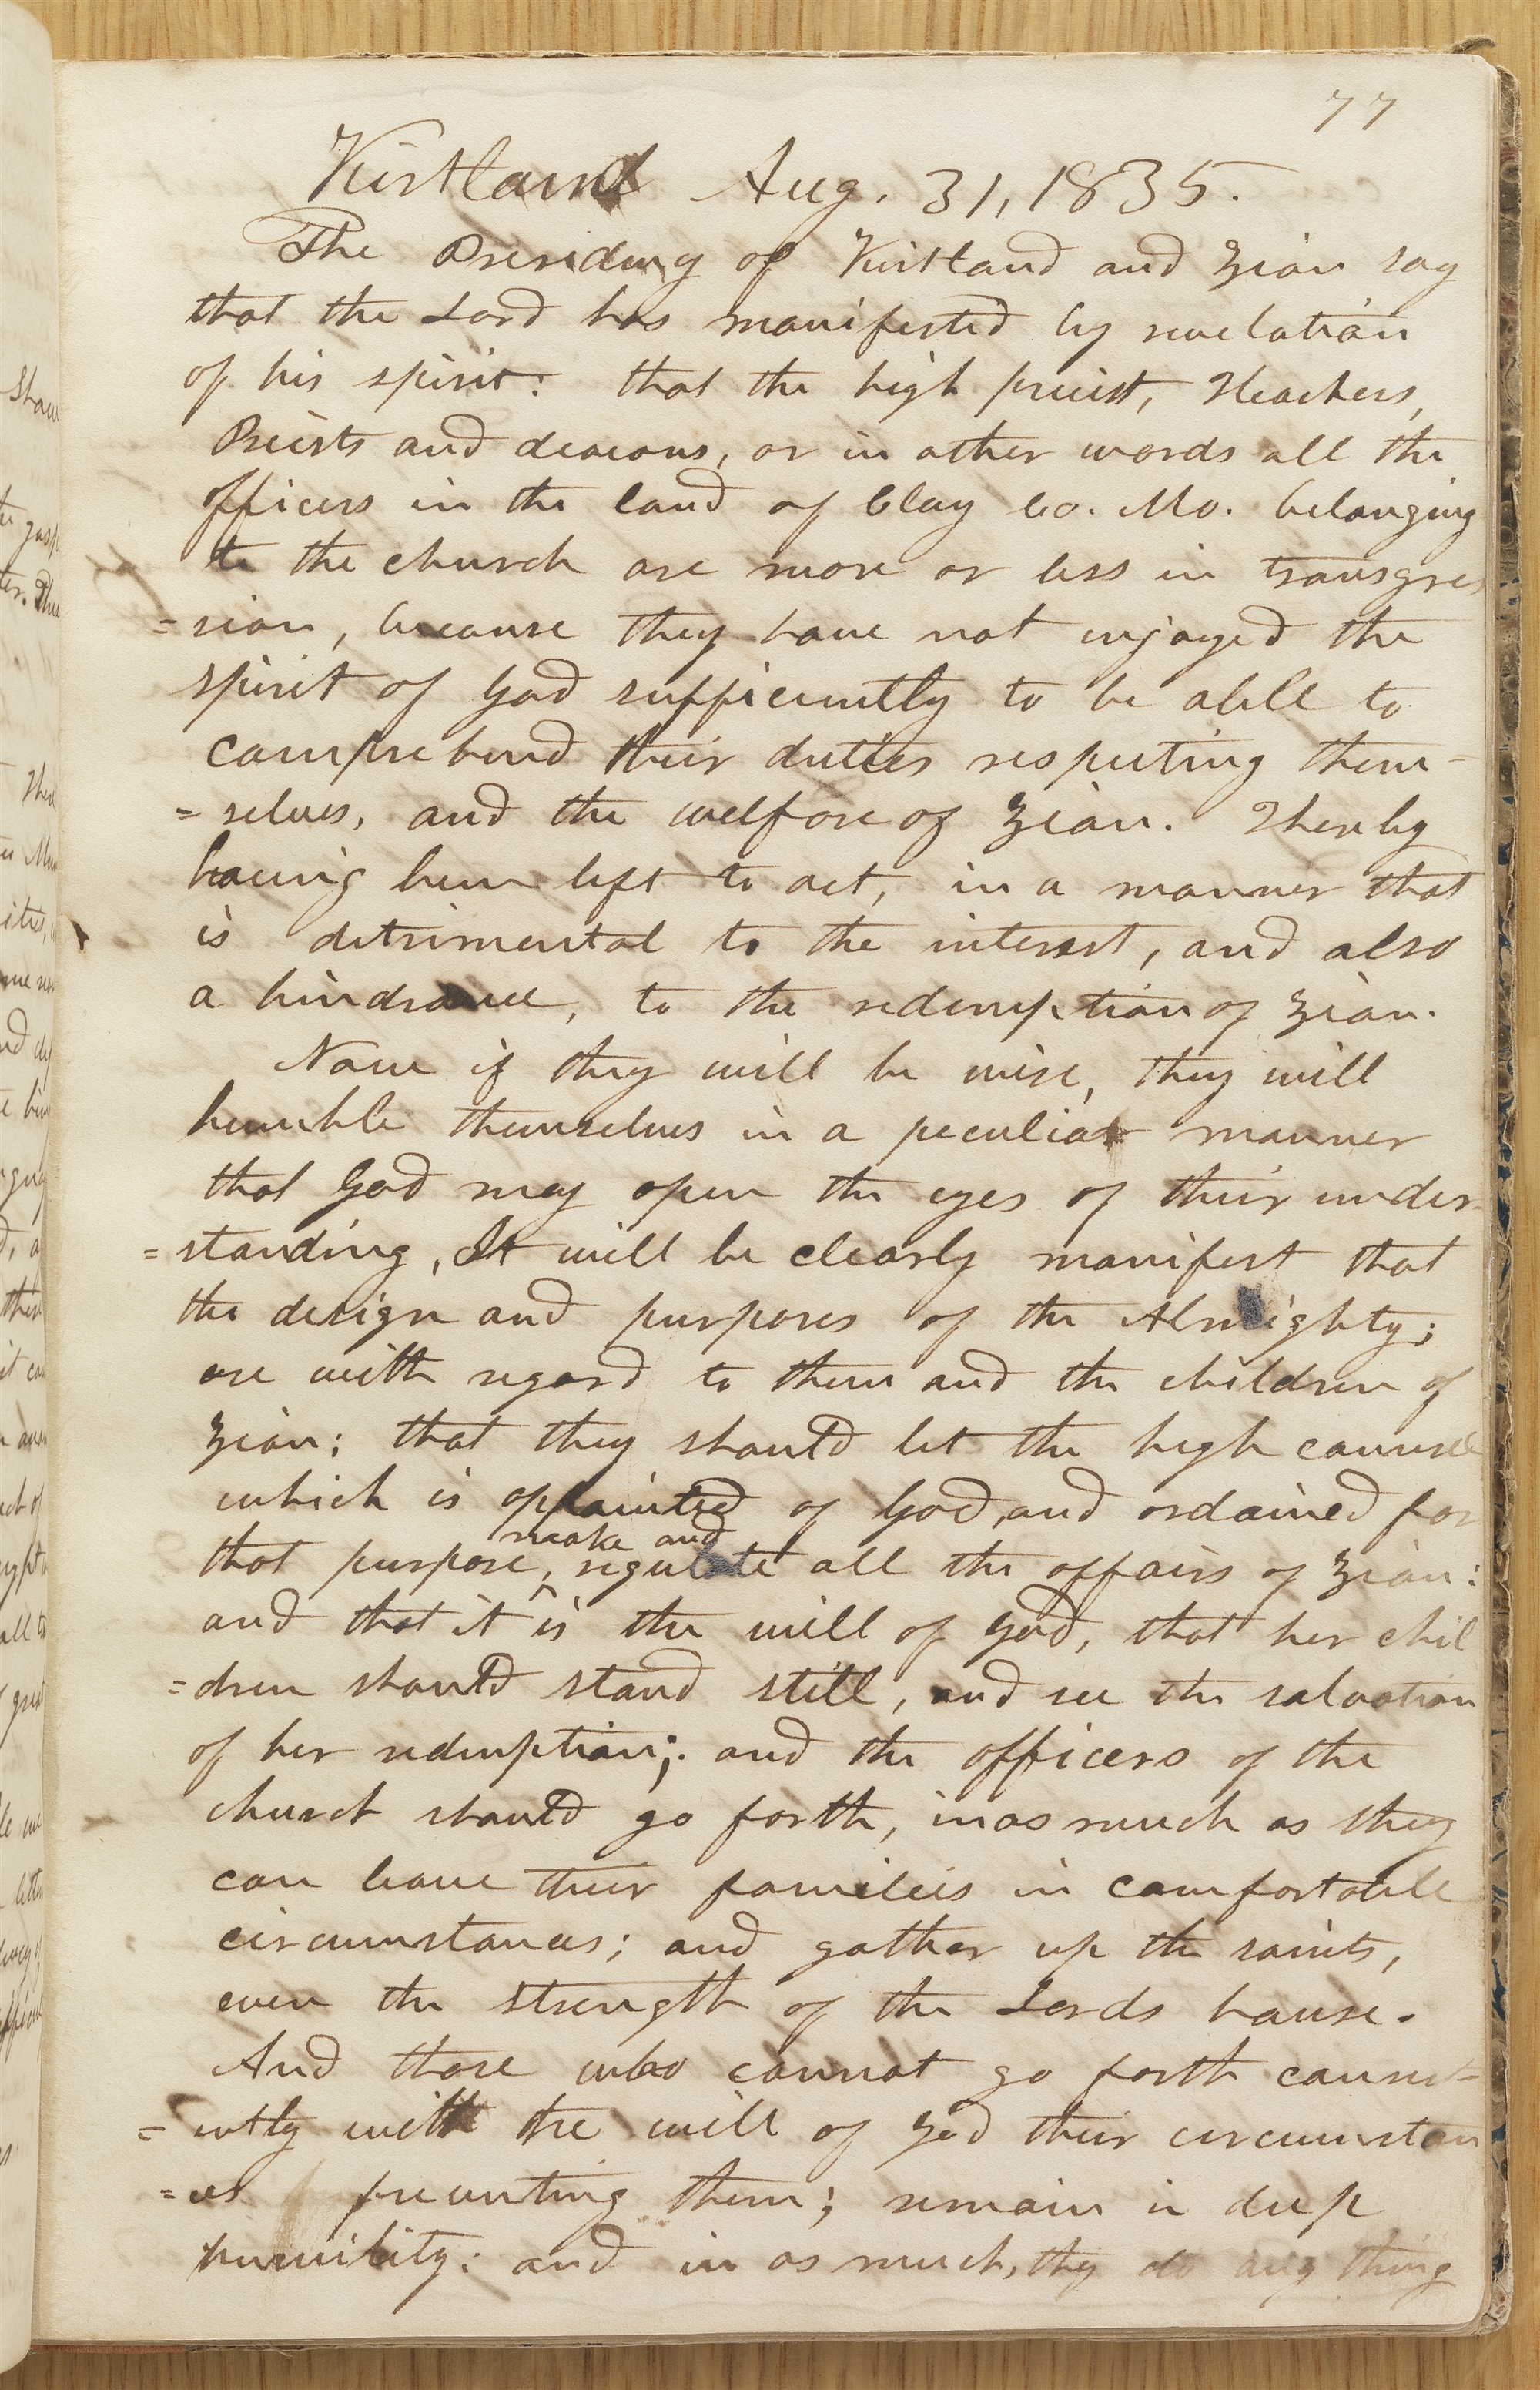 77
Kirtland Aug. 31, 1835.
The Presiding of Kirtland and Zion say
that the Lord has manifested by revelation
of his spirit: that the high priest, Teachers,
Priests and deacons, or in other words all the
officers in the land of Clay Co. Mo. belonging
to the church are more or less in transgres
=sion, because they have not injoyed the
spirit of God sufficiently to be able to
comprehend their duties respecting them-
=selves, and the welfare of Zion. Thereby
having been left to act, in a manner that
is detrimental to the interest, and also
a hindrance, to the redemption of Zion.
Now if they will be wise, they will
humble themselves in a peculiar manner
that God may open the eyes of their under-
=standing, It will be clearly manifest that
the design and purposes of the Almighty;
are with regard to them and the children of
Zion; that they should let the high counsel
which is appointed of God, and ordained for
make and
that purpose, ^ regulate all the affairs of Zion:
and that it is the will of God, that her chil
=dren should stand still, and see the salvation
of her redemption; and the officers of the
church should go forth, inasmuch as they
can leave their families in comfortable
circumstances; and gather up the saints,
even the strength of the Lords house.
And those who cannot go forth consist-
=ently with the will of God their circumstan
=ces preventing them; remain in deep
humility: and in as much, thy do any thing